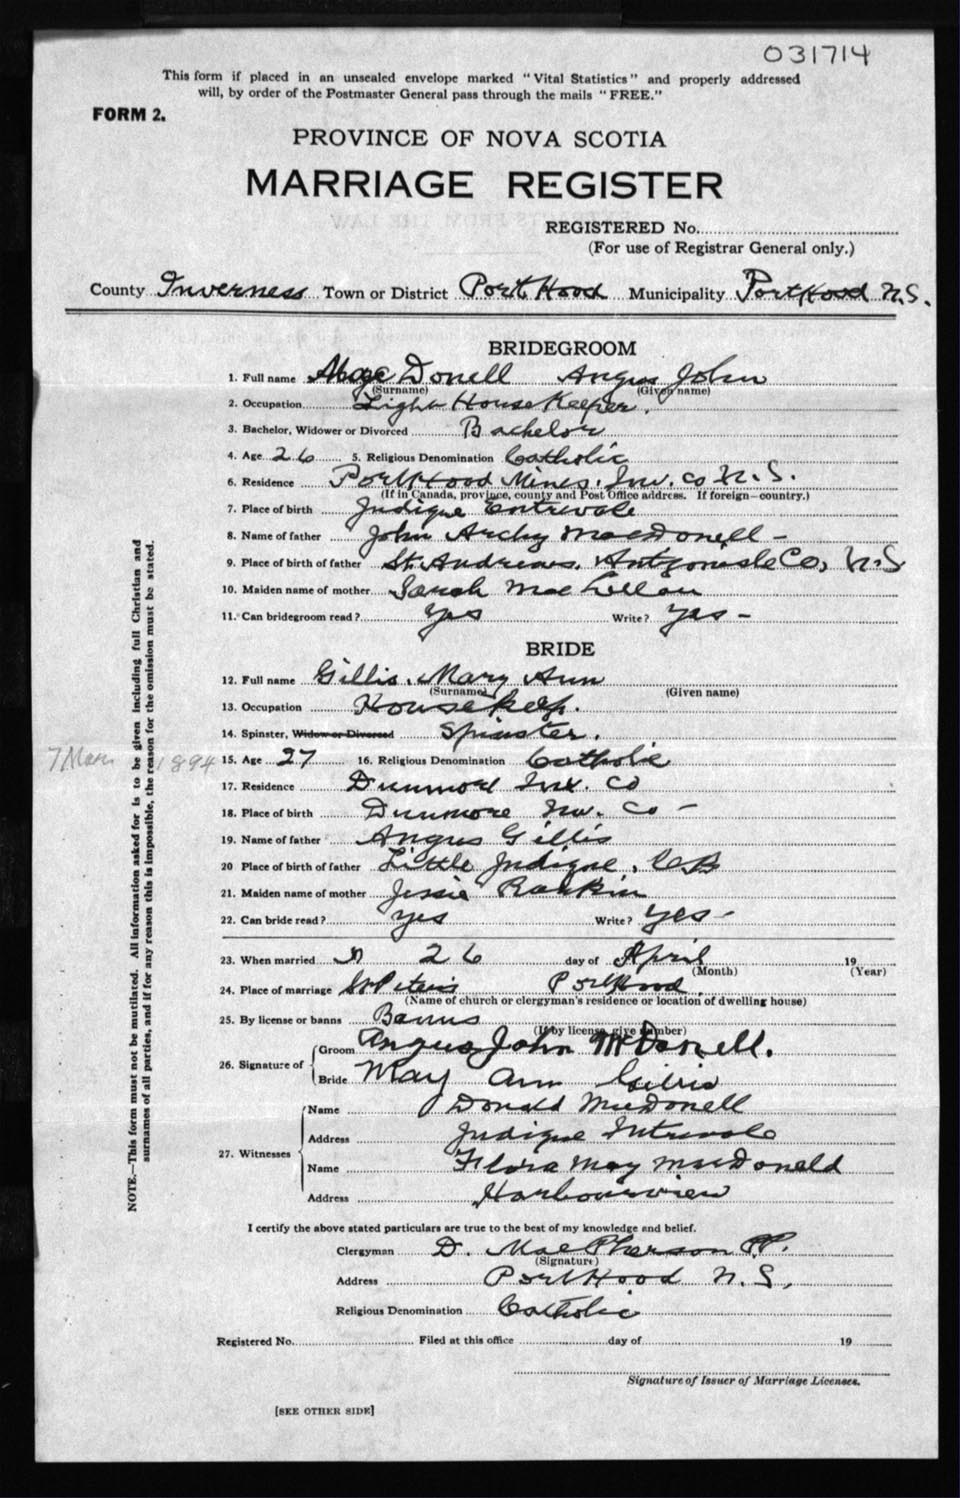 031714
This form if placed in an unsealed envelope marked "Vital Statistics" and properly addressed
will, by order of the Postmaster General pass through the mails "FREE."
FORM 2.
PROVINCE OF NOVA SCOTIA
MARRIAGE REGISTER
REGISTERED No.
(For use of Registrar General only.)
County Inverness Town or District Port Hood Municipality Port Hood N.S.
BRIDEGROOM
1. Full name MacDonell Angus John
(Surname) (Given name)
2. Occupation Light House Keeper.
3. Bachelor, Widower or Divorced Bachelor
4. Age 26 5. Religious Denomination Catholic
6. Residence Port Hood Mines. Inv. Co N.S.
(If in Canada, province, county and Post Office address. If foreign—country.)
7. Place of birth Judique Entrevale
8. Name of father John Archy MacDonell –
9. Place of birth of father St. Andrews, Antgonish Co, N.S
10. Maiden name of mother Sarah MacLellan
11. Can bridegroom read? Yes Write? Yes –
BRIDE
12. Full name Gillis. Mary Ann
(Surname) (Given name)
13. Occupation
14. Spinster, Widow or Divorced Spinster.
7 Mar 1894
15. Age 27 16. Religious Denomination Catholic
17. Residence Dunmore Inv. Co
18. Place of birth Dunmore Inv. Co –
19. Name of father Angus Gillis
20 Place of birth of father Little Judique, C B
21. Maiden name of mother Jessie Rankin
22. Can bride read? yes Write? yes –
23. When married 26 day of April 19
(Month) (Year)
24. Place of marriage St Peters Port Hood.
(Name of church or clergyman's residence or location of dwelling house)
25. By license or banns Banns
(If by license, give number)
26. Signature of
Groom Angus John McDonell.
Bride Mary Ann Gillis
27. Witnesses
Name Donald MacDonell
Address Judique Intrevale
Name Flora May MacDonald
Address Harbourview
I certify the above stated particulars are true to the best of my knowledge and belief.
Clergyman D. MacPherson P.P.
(Signature)
Address Port Hood N.S,
Religious Denomination Catholic
Registered No. Filed at this office day of 19
Signature of Issuer of Marriage Licenses.
[SEE OTHER SIDE]
NOTE.—This form must not be mutilated. All information asked for is to be given including full Christian and
surnames of all parties, and if for any reason this is impossible, the reason for the omission must be stated.